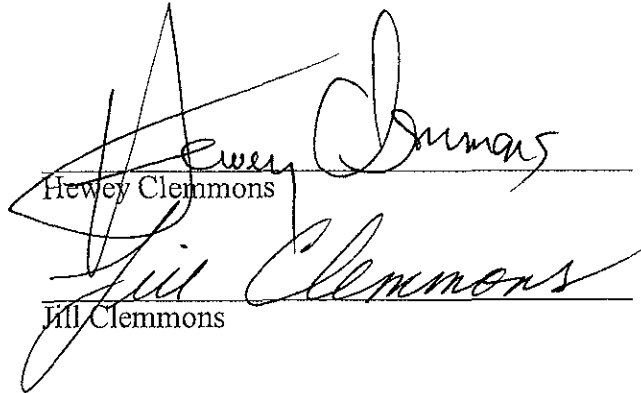 Hewey Clemmons
Hewey Clemmons
Jill Clemmons
Jill Clemmons